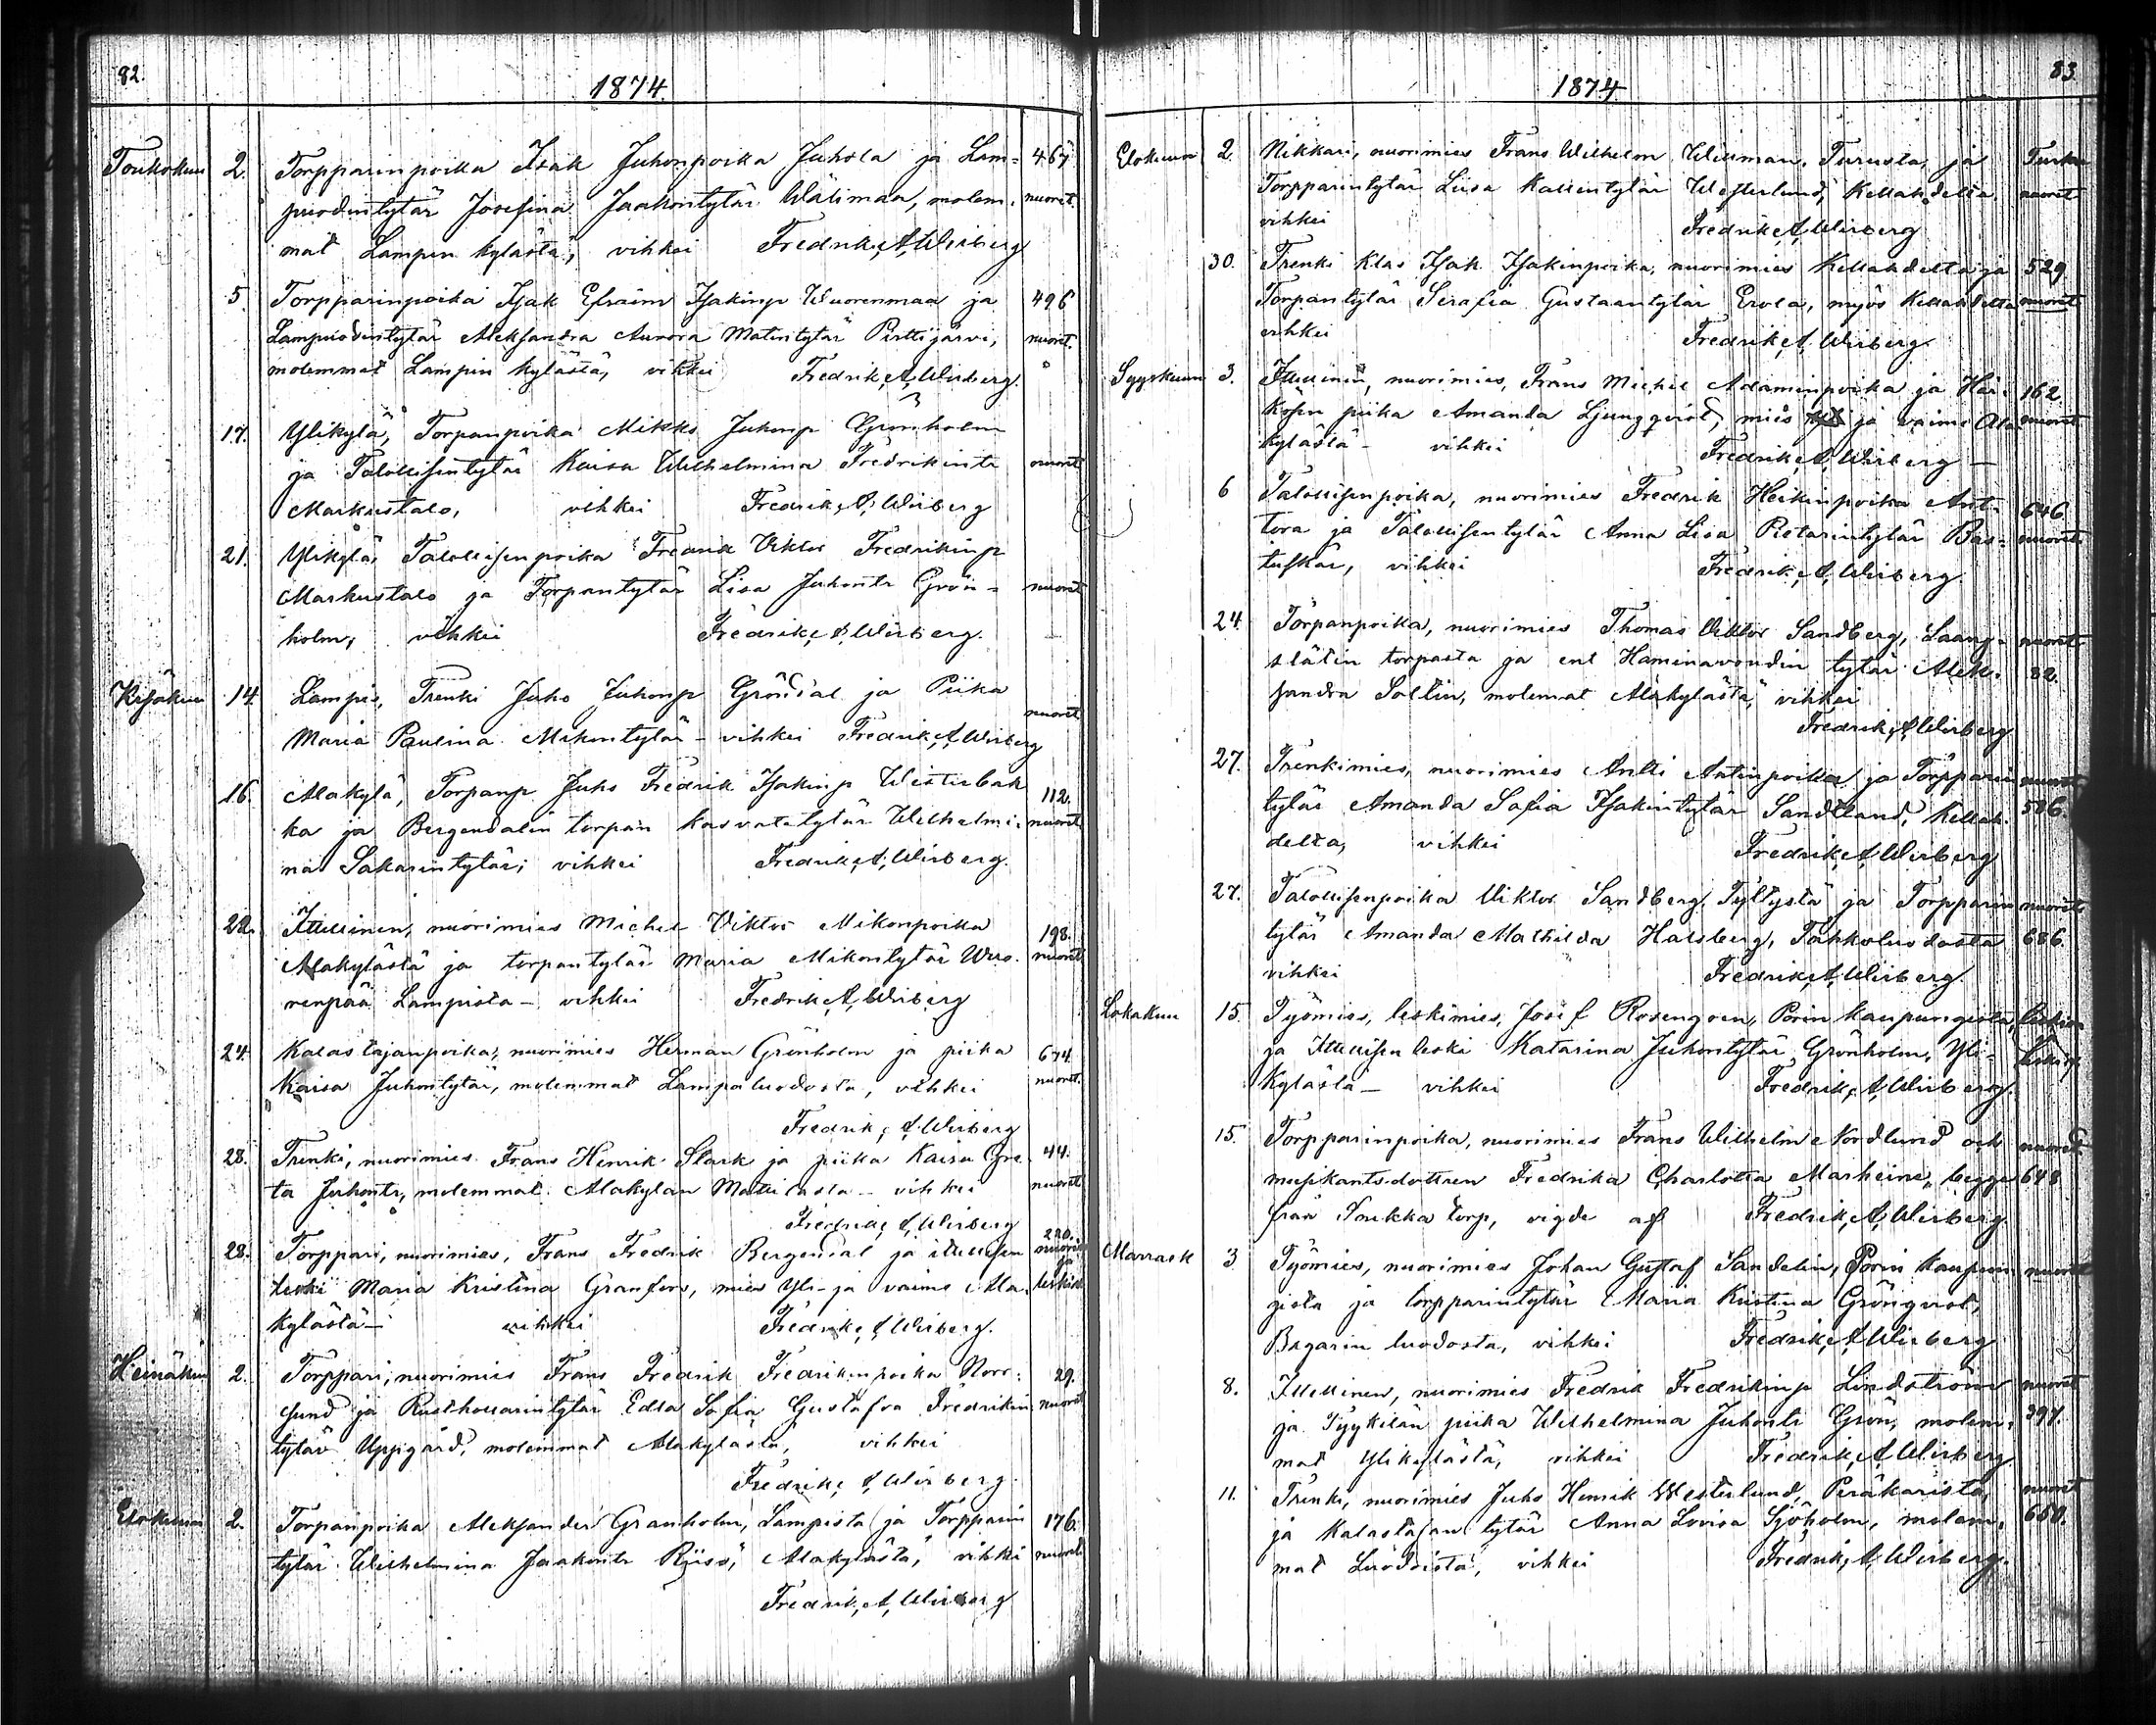 82.
1874.
Toukokuu 2. Torpparinpoika Isak Juhonpoika Juhola ja Lam- 467
puodintytär Josefina Jaakontytär Wälimaa, molem- nuoret.
mat Lampin kylästä, vihkei Fredrik A Wirberg
5 Torpparinpoika Isak Efraim Isakinp Wuorenmaa ja 496
Lampuodintytär Aleksandra Aurora Matintytär Pirttijärvi, nuoret.
molemmat Lampin kylästä, vihkei Fredrik A Wirberg.
17. Ylikylä, Torpanpoika Mikko Juhonp Grönholm
ja Talollisentytär Kaisa Wilhelmina Fredrikintr nuoret
Markustalo, vihkei Fredrik A Wirberg
21. Ylikylä, Talollisenpoika Fredrik Viktor Fredrikinp
Markustalo ja Torpantytär Lisa Juhontr Grön- nuoret
holm, vihkei Fredrik A Wirberg.
Kesäkuu 14. Lampis, Trenki Juho Juhonp Gröndal ja Piika
nuoret
Maria Paulina Mikontytär - vihkei Fredrik A Wirberg
16. Alakylä, Torpanp Juho Fredrik Isakinp Wisterbak 112.
ka ja Bergendalin torpan kasvatetytär Wilhelmi- nuoret
na Sakarintytär, vihkei Fredrik A Wirberg.
22. Itsellinen, nuorimies Michel Viktor Mikonpoika 198.
Alakylästä ja torpantytär Maria Mikontytär Wuo- nuoret
renpää Lampista - vihkei Fredrik A Wirberg
24. Kalastajanpoika, nuorimies Herman Grönholm ja piika 674
Kaisa Juhontytär, molemmat Lampaluodosta, vihkei nuoret.
Fredrik A Wirberg
28. Trenki, nuorimies Frans Henrik Stark ja piika Kaisa Gre- 44.
ta Juhontr, molemmat Alakylän Mattilasta - vihkei nuoret
Fredrik A Wirberg
28. Torppari, nuorimies, Frans Fredrik Bergendal ja itsellisen 220. nuori ja
leski Maria Kristina Granfors, mies Yli- ja vaimo Ala- leski
kylästä - vihkei Fredrik A Wirberg.
Heinäkuu 2. Torppari, nuorimies Frans Fredrik Fredrikinpoika Norr- 29.
sund ja Rusthollarintytär Edla Sofia Gustafva Fredrikin nuoret
tytär Uppgård, molemmat Alakylästä, vihkei
Fredrik A Wirberg.
Elokuun 2. Torpanpoika Aleksander Granholm, Lampista ja Torpparin 176.
tytär Wilhelmina Jaakontr Alakylästä, vihkei nuoret
Fredrik A Wirberg
83
1874
Elokuun 2. Nikkari, nuorimies Frans Wilhelm Turusta, ja Turku
Torpparintytär Liisa Kallentytär Westerlund, Kellahdelta nuoret
vihkei Fredrik A Wirberg
30. Trenki Klas Isak Isakinpoika, nuorimies Kellahdelta ja 529.
Torpantytär Serafia Gustaantytär Erola, myös Kellahdelta nuoret
vihkei Fredrik A Wirberg.
Syyskuun 3. Itsellinen, nuorimies, Frans Michel Adaminpoika ja Hei- 162.
kosen piika Amanda Ljungqvist, mies ja vaimo Ala nuoret
kylästä - vihkei Fredrik A Wirberg -
6 Talollisenpoika, nuorimies Fredrik Heikinpoika Ant- 646
tora ja Talollisentytär Anna Lisa Pietarintytär Bas- nuoret
tuskär, vihkei Fredrik A Wirberg.
24. Torpanpoika, nuorimies Thomas Viktor Sandberg, Saang- nuoret
slätin torpasta ja ent Haminavoudin tytär Alek- 82.
sandra Sallin, molemat Alakylästä, vihkei
Fredrik A Wirberg
27. Trenkimies, nuorimies Antti Antinpoika ja Torpparin nuoret
tytär Amanda Sofia Isakintytär Sandstand, Kellah 586.
delta, vihkei Fredrik A Wirberg
27. Talollisenpoika Viktor Sandberg Tyltystä ja Torpparin nuoret
tytär Amanda Mathilda Halsberg, Tahkoluodosta 686.
vihkei Fredrik A Wirberg.
Lokakuu 15. Työmies, leskimies, Josef Rosengren, Porin kaupungista,
ja Itsellisen leski Katarina Juhontytär Grönholm, Yli-
kylästä - vihkei Fredrik A Wirberg.
15. Torpparinpoika, nuorimies Frans Wilhelm Nordlund och nuoret
musikantsdottren Fredrika Charlotta Marheine, begge 648
från torp, vigde af Fredrik A Wirberg.
Marrask 3. Työmies, nuorimies Johan Gustaf Sandelin, Porin kaupun nuoret
gista ja torpparintytär Maria Kristina Grönqvist,
Bagarin luodosta, vihkei Fredrik A Wirberg
8. Itsellinen, nuorimies Fredrik Fredrikinp Lindström nuoret
ja Tyykilän piika Wilhelmina Juhontr Grön, molem- 397.
mat Ylikylästä, vihkei Fredrik A Wirberg
11. Trenki, nuorimies Juho Henrik Westerlund, Peräkaristа, nuoret
ja Kalastajan tytär Anna Lovisa Sjöholm, molem- 660.
mat Luodoista, vihkei Fredrik A Wirberg.